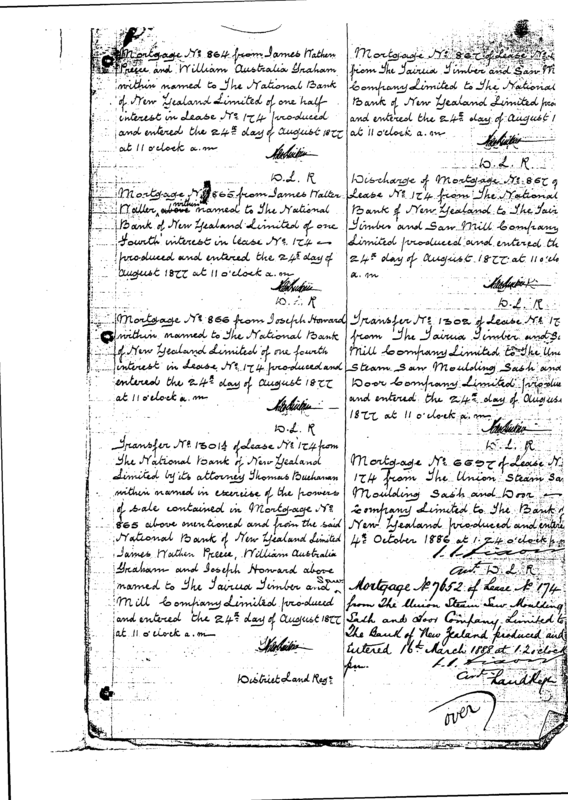 Mortgage No. 864 from James Wathen
Preece and William Australia Graham
within named to The National Bank
of New Zealand Limited of one half
interest in Lease No. 174 produced
and entered the 24th day of August 1877
at 11 o'clock a.m
D. L. R
Mortgage No. 865 from James Walter
Walter above within named to The National
Bank of New Zealand Limited of one
Fourth interest in lease No. 174
produced and entered the 24th day of
August 1877 at 11 o'clock a.m
D. L. R
Mortgage No. 866 from Joseph Howard
within named to The National Bank
of New Zealand Limited of one fourth
interest in Lease No. 174 produced and
entered the 24th day of August 1877
at 11 o'clock a.m
D. L. R
Transfer No. 1301½ of Lease No. 174 from
The National Bank of New Zealand
Limited by its attorney Thomas Buchanan
within named in exercise of the powers
of sale contained in Mortgage No.
865 above mentioned and from the said
National Bank of New Zealand Limited
James Wathen Preece, William Australia
Graham and Joseph Howard above
named to The Tairua Timber and Saw
Mill Company Limited produced
and entered the 24th day of August 1877
at 11 o'clock a.m
District Land Regr
Mortgage No. 867 of Lease
from The Tairua Timber and Saw M
Company Limited to The National
Bank of New Zealand Limited pro
and entered the 24th day of August 1
at 11 o'clock a.m
D. L. R
Discharge of Mortgage No. 867 of
Lease No. 174 from The National
Bank of New Zealand to The Tair
Timber and Saw Mill Company
Limited produced and entered the
24th day of August 1877 at 11 o'clo
a.m
D. L. R
Transfer No. 1302 of Lease No. 17
from The Tairua Timber and S
Mill Company Limited to The Uni
Steam Saw Moulding Sash and
Door Company Limited produce
and entered the 24th day of August
1877 at 11 o'clock a.m
D. L. R
Mortgage No. 6697 of Lease N
174 from The Union Steam Sa
Moulding Sash and Door
Company Limited to The Bank of
New Zealand produced and entere
4th October 1886 at 1.24 o'clock p.
D. L. R
Mortgage No. 7652 of Lease No. 174
from The Union Steam Saw Moulding
Sash and Door Company Limited to
The Bank of New Zealand produced and
entered 16th March 1888 at 1.2 o'clock
pm.
Asst Land Regr
over